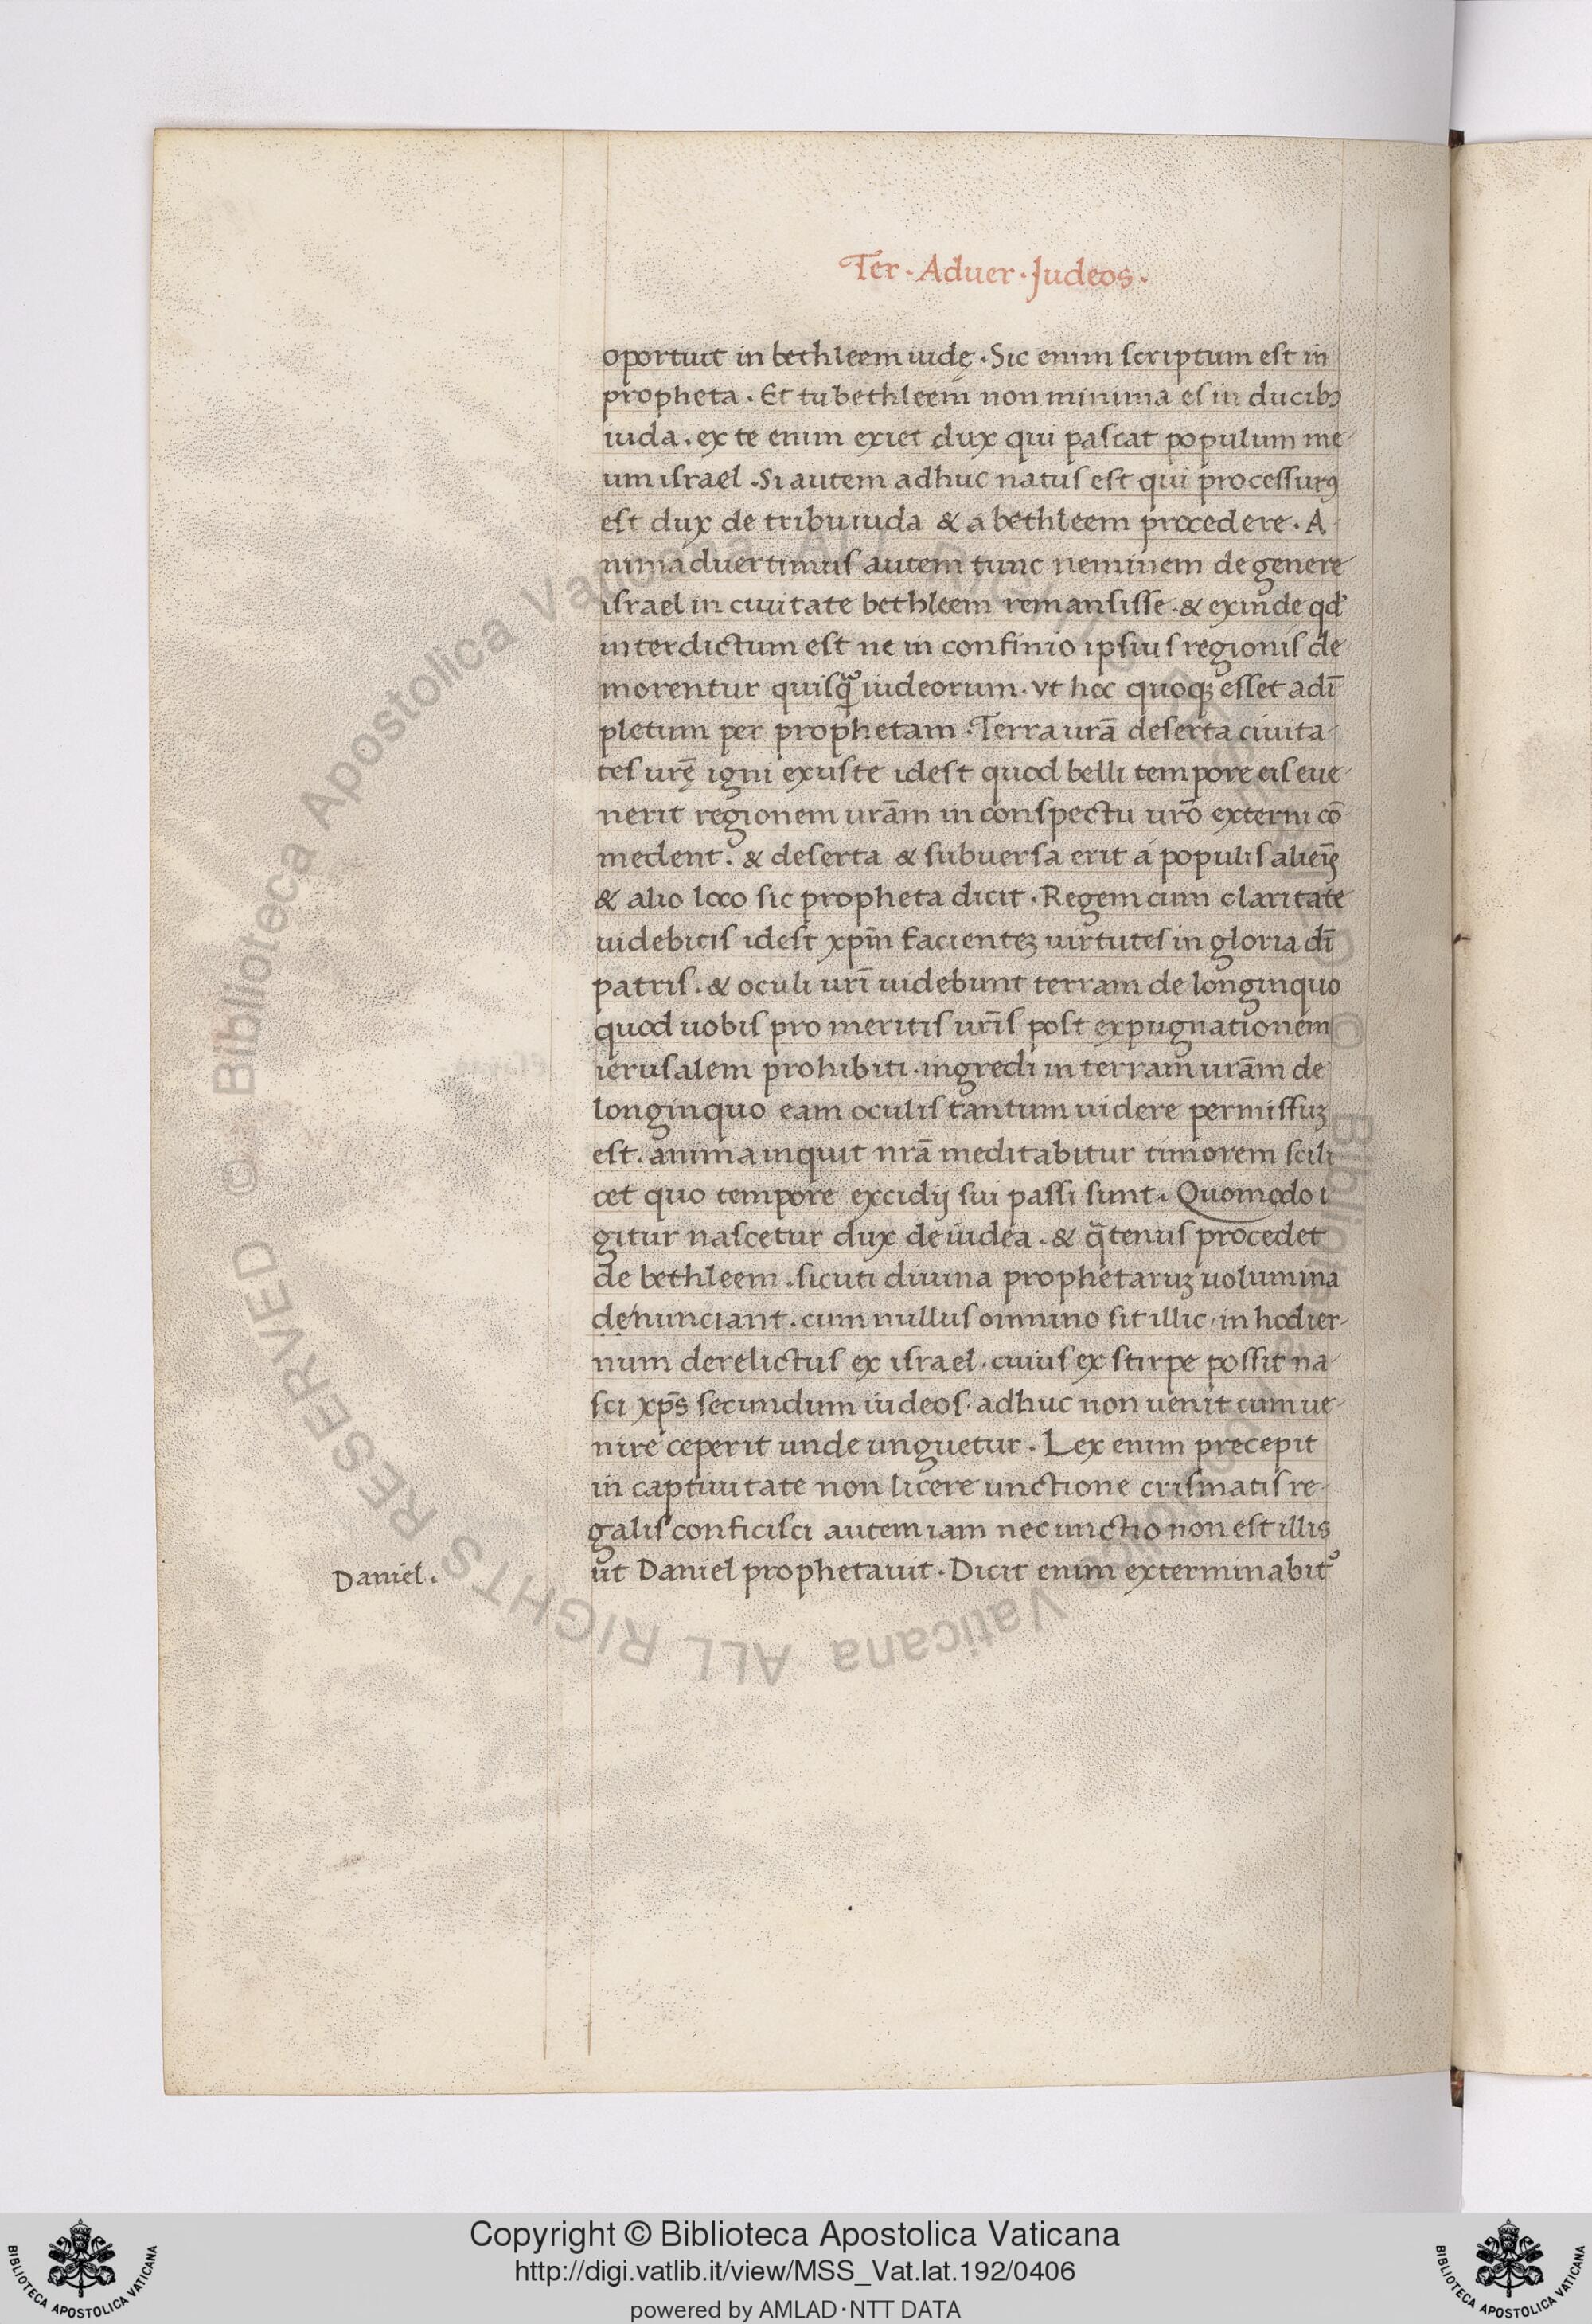 Ter · Aduer · Judeos ·
oportuit in bethleem iudę · Sic enim scriptum est in
propheta · Et tu bethleem non minima es in ducibꝫ
iuda · ex te enim exiet dux qui pascat populum me-
um israel · Si autem adhuc natus est qui processurꝰ
est dux de tribu iuda & a bethleem procedere · A
nimaduertimus autem tunc neminem de genere
israel in ciuitate bethleem remansisse · & exinde qd'
interdictum est ne in confinio ipsius regionis de-
morentur quisqᷓ iudeorum · vt hoc quoqꝫ esset adī
pletum per prophetam · Terra urā deserta ciuita-
tes urę̄ igni exuste idest quod belli tempore eis eue-
nerit regionem urām in conspectu urō externi cō-
medent · & deserta & subuersa erit á populis alieīs
& alio loco sic propheta dicit · Regem cum claritate
uidebitis idest xp̄m facienteꝫ uirtutes in gloria dī
patris · & oculi urī uidebunt terram de longinquo
quod uobis pro meritis urīs post expugnationem
ierusalem prohibiti · ingredi in terram urām de
longinquo eam oculis tantum uidere permissuꝫ
est · anima inquit nrā meditabitur timorem scili
cet quo tempore excidij sui passi sunt · Quomodo i
gitur nascetur dux de iudea · & qᷓtenus procedet
de bethleem · sicuti diuina prophetaruꝫ uolumina
denunciant · cum nullus omnino sit illic · in hodier-
num derelictus ex israel · cuius ex stirpe possit na-
sci xp̄s secundum iudeos · adhuc non uenit cum ue-
nire ceperit unde unguetur · Lex enim precepit
in captiuitate non licere unctione crismatis re-
galis conficisci autem iam nec unctio non est illis
Daniel ·
ut Daniel prophetauit · Dicit enim exterminabit᷑
© Biblioteca Apostolica Vaticana ALL RIGHTS RESERVED
Copyright © Biblioteca Apostolica Vaticana
http://digi.vatlib.it/view/MSS_Vat.lat.192/0406
powered by AMLAD·NTT DATA
BIBLIOTECA APOSTOLICA VATICANA
BIBLIOTECA APOSTOLICA VATICANA